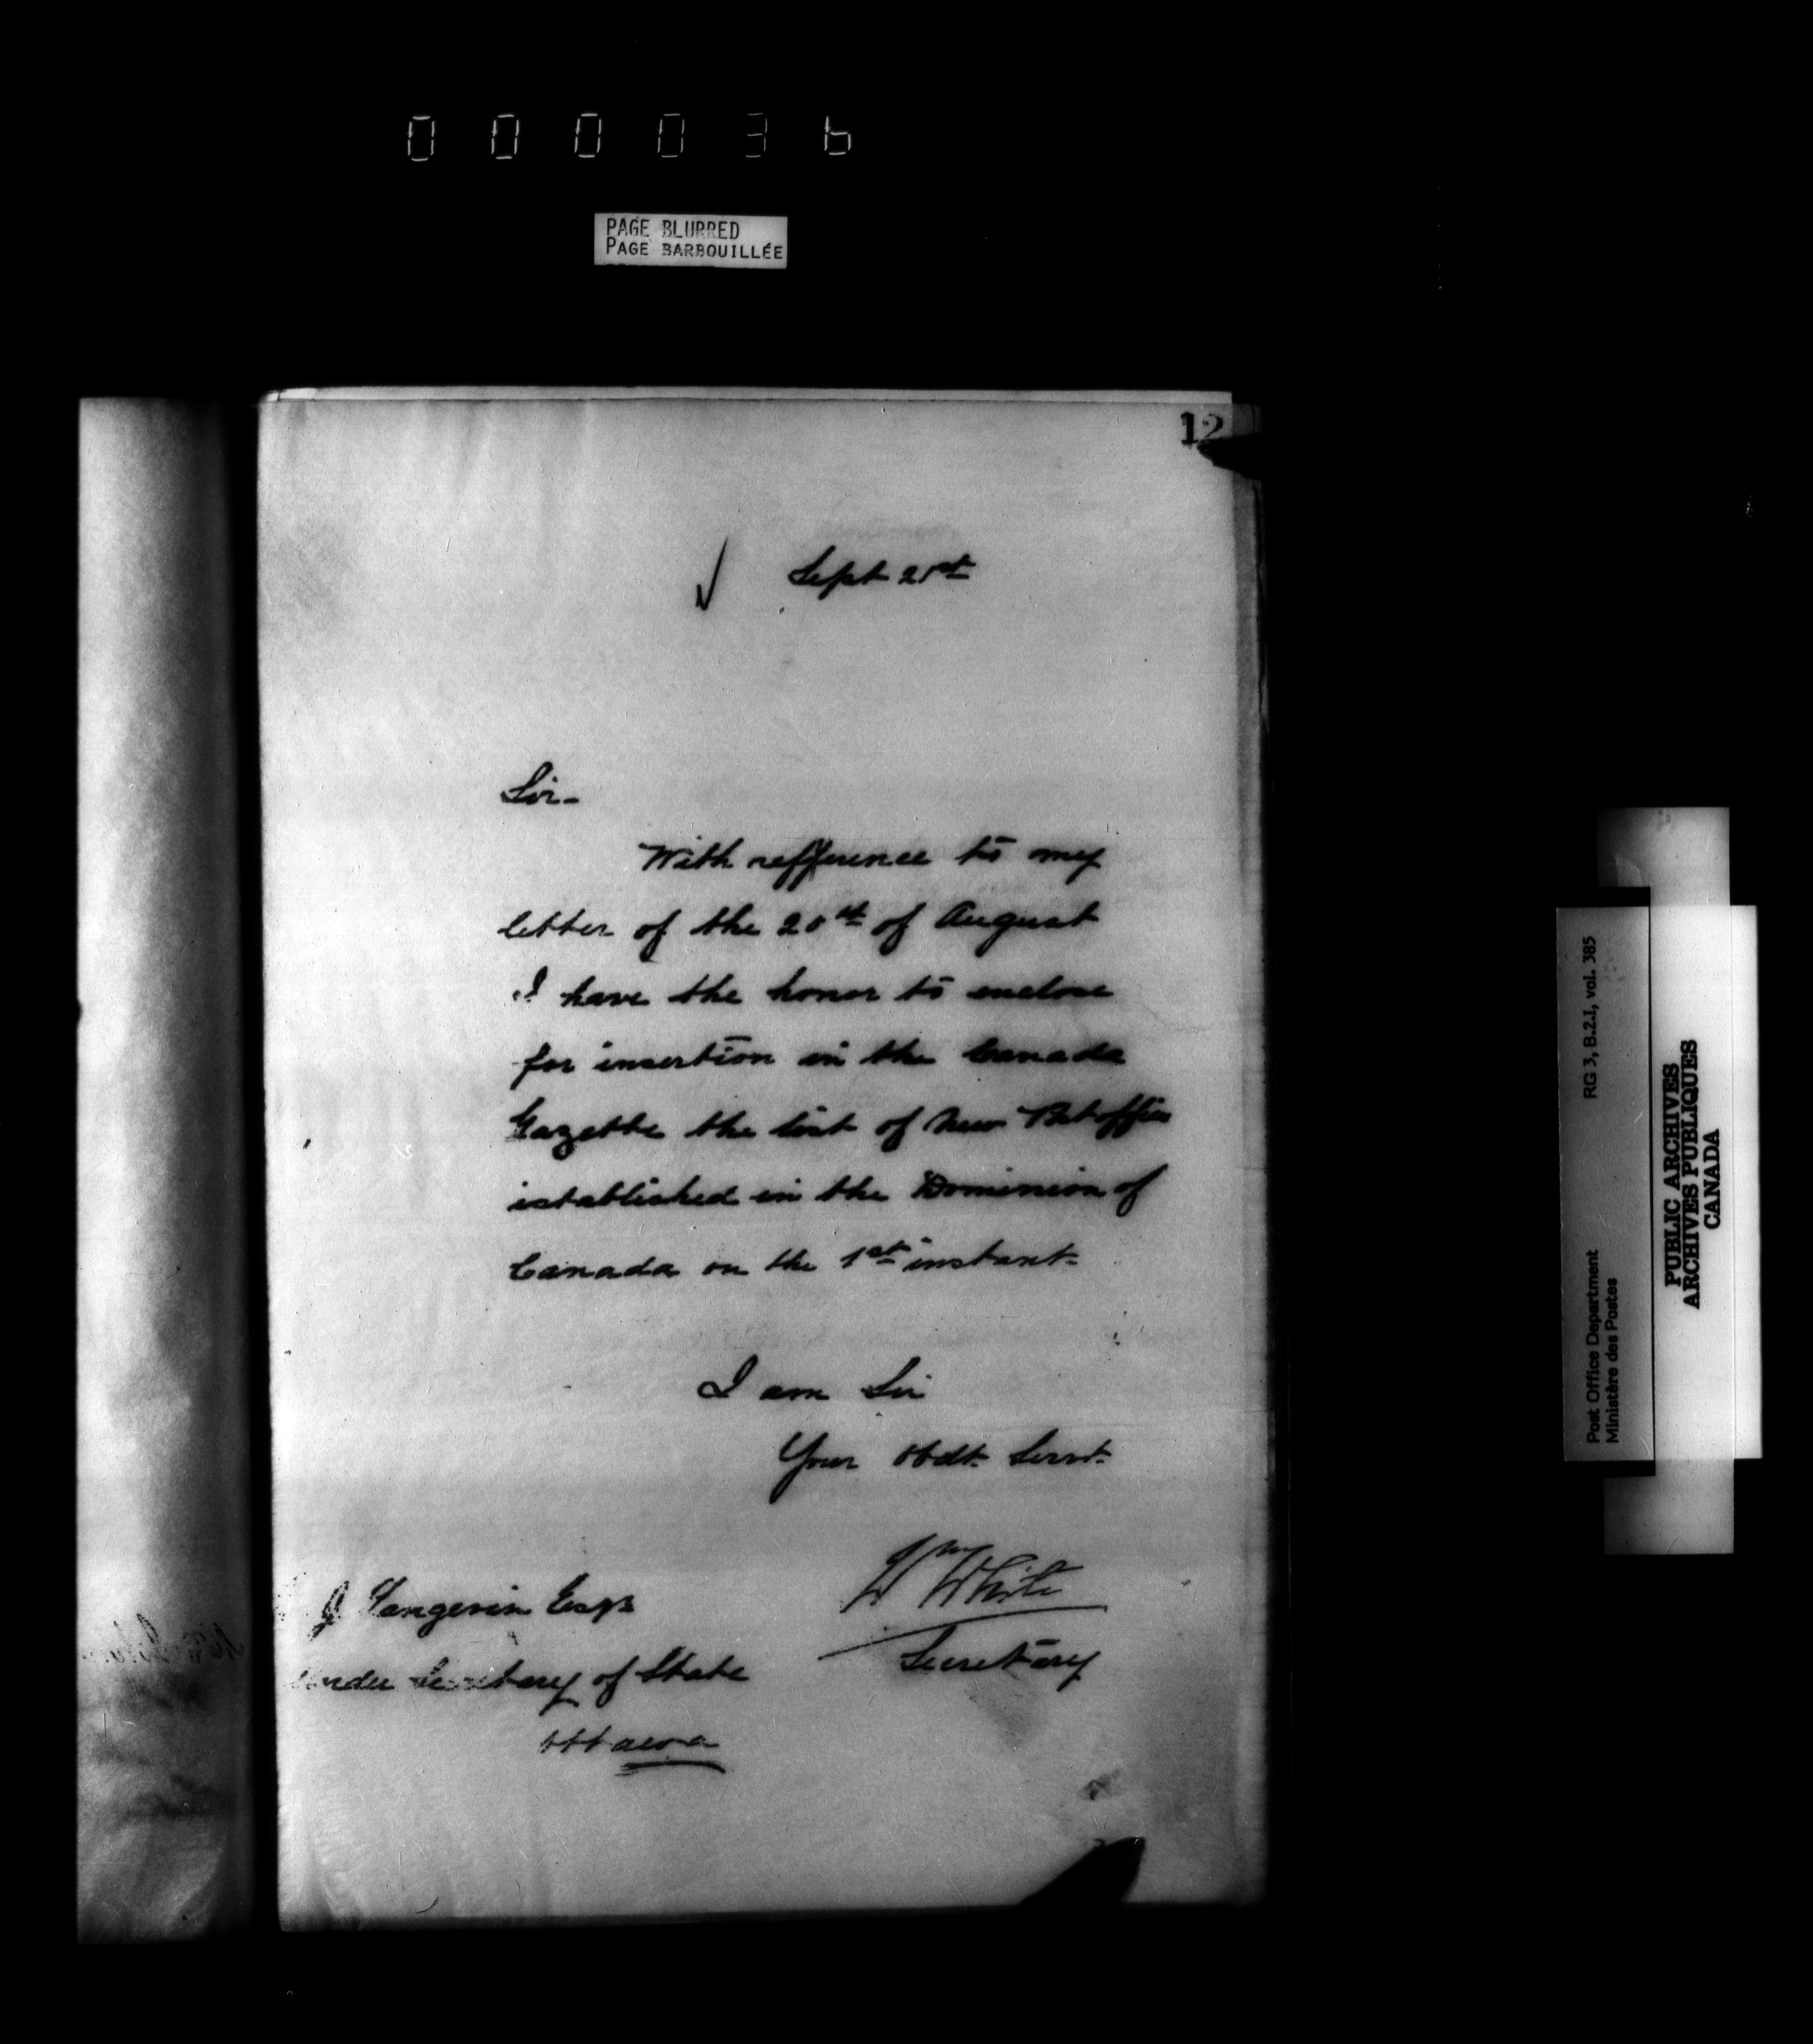 000036
PAGE BLURRED
PAGE BARBOUILLÉE
12
Sept 21st
Sir-
With refference to my
letter of the 20th of August
I have the honor to enclose
for insertion in the Canada
Gazette the list of New Postoffices
established in the Dominion of
Canada on the 1st instant-
I am Sir
Your Obdt. Servt.
Wm White
Secretary
J Langevin Esqr
Under Secretary of State
Ottawa
Post Office Department
Ministère des Postes
RG 3, B.2.1, vol. 385
PUBLIC ARCHIVES
ARCHIVES PUBLIQUES
CANADA